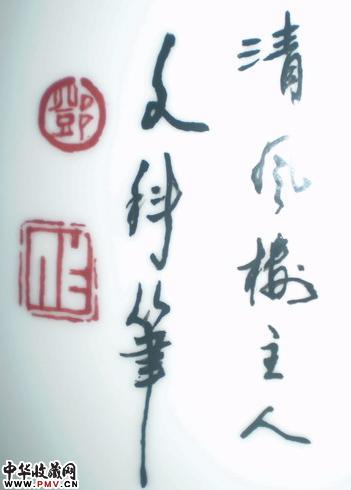 清风楼主人
文科筆
鄧
中华收藏网
www.PMV.CN